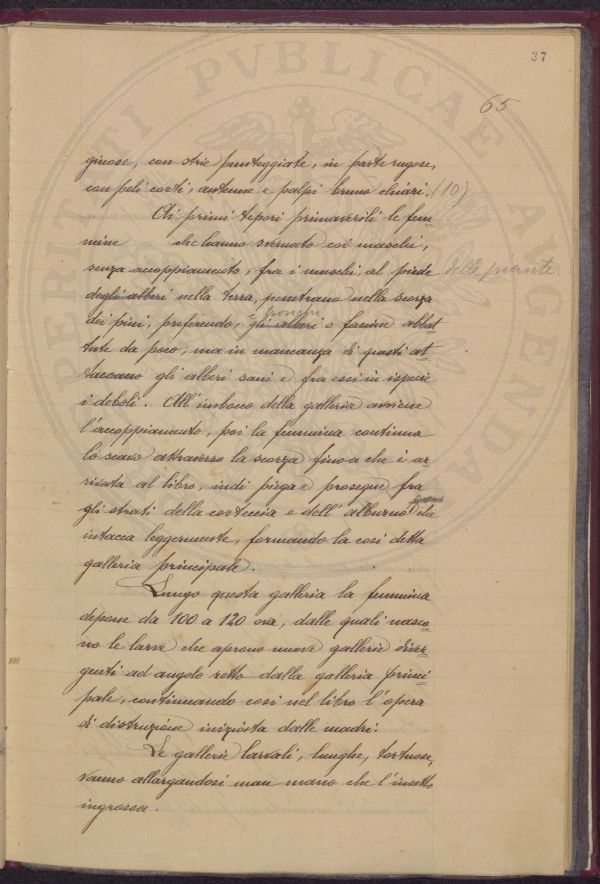 37
65
ginose, con strie punteggiate, in parte rugose,
con peli corti, antenne e palpi bruno chiari. (10)
Ai primi tepori primaverili le fem
mine che hanno svernato coi maschi,
senza accoppiamento, fra i mucchi, al piede delle piante
degli alberi nella terra, penetrano nella scorza
dei pini, preferendo, gli alberi o fascine abbat
tute da poco, ma in mancanza di questi at
taccano gli alberi sani e fra essi in ispecie
i deboli. All'imbocco della galleria avviene
l'accoppiamento, poi la femmina continua
lo scavo attraverso la scorza fino a che è ar
rivata al libro, indi piega e prosegue fra
gli strati della corteccia e dell'alburno
intacca leggermente, formando la così detta
galleria principale.
Lungo questa galleria la femmina
depone da 100 a 120 ova, dalle quali nasco
no le larve che aprono nuove gallerie diver
genti ad angolo retto dalla galleria princi
pale, continuando così nel libro l'opera
di distruzione iniziata dalle madri.
Le gallerie larvali, lunghe, tortuose,
vanno allargandosi man mano che l'insetto
ingrossa.
PERITI PVBLICAE